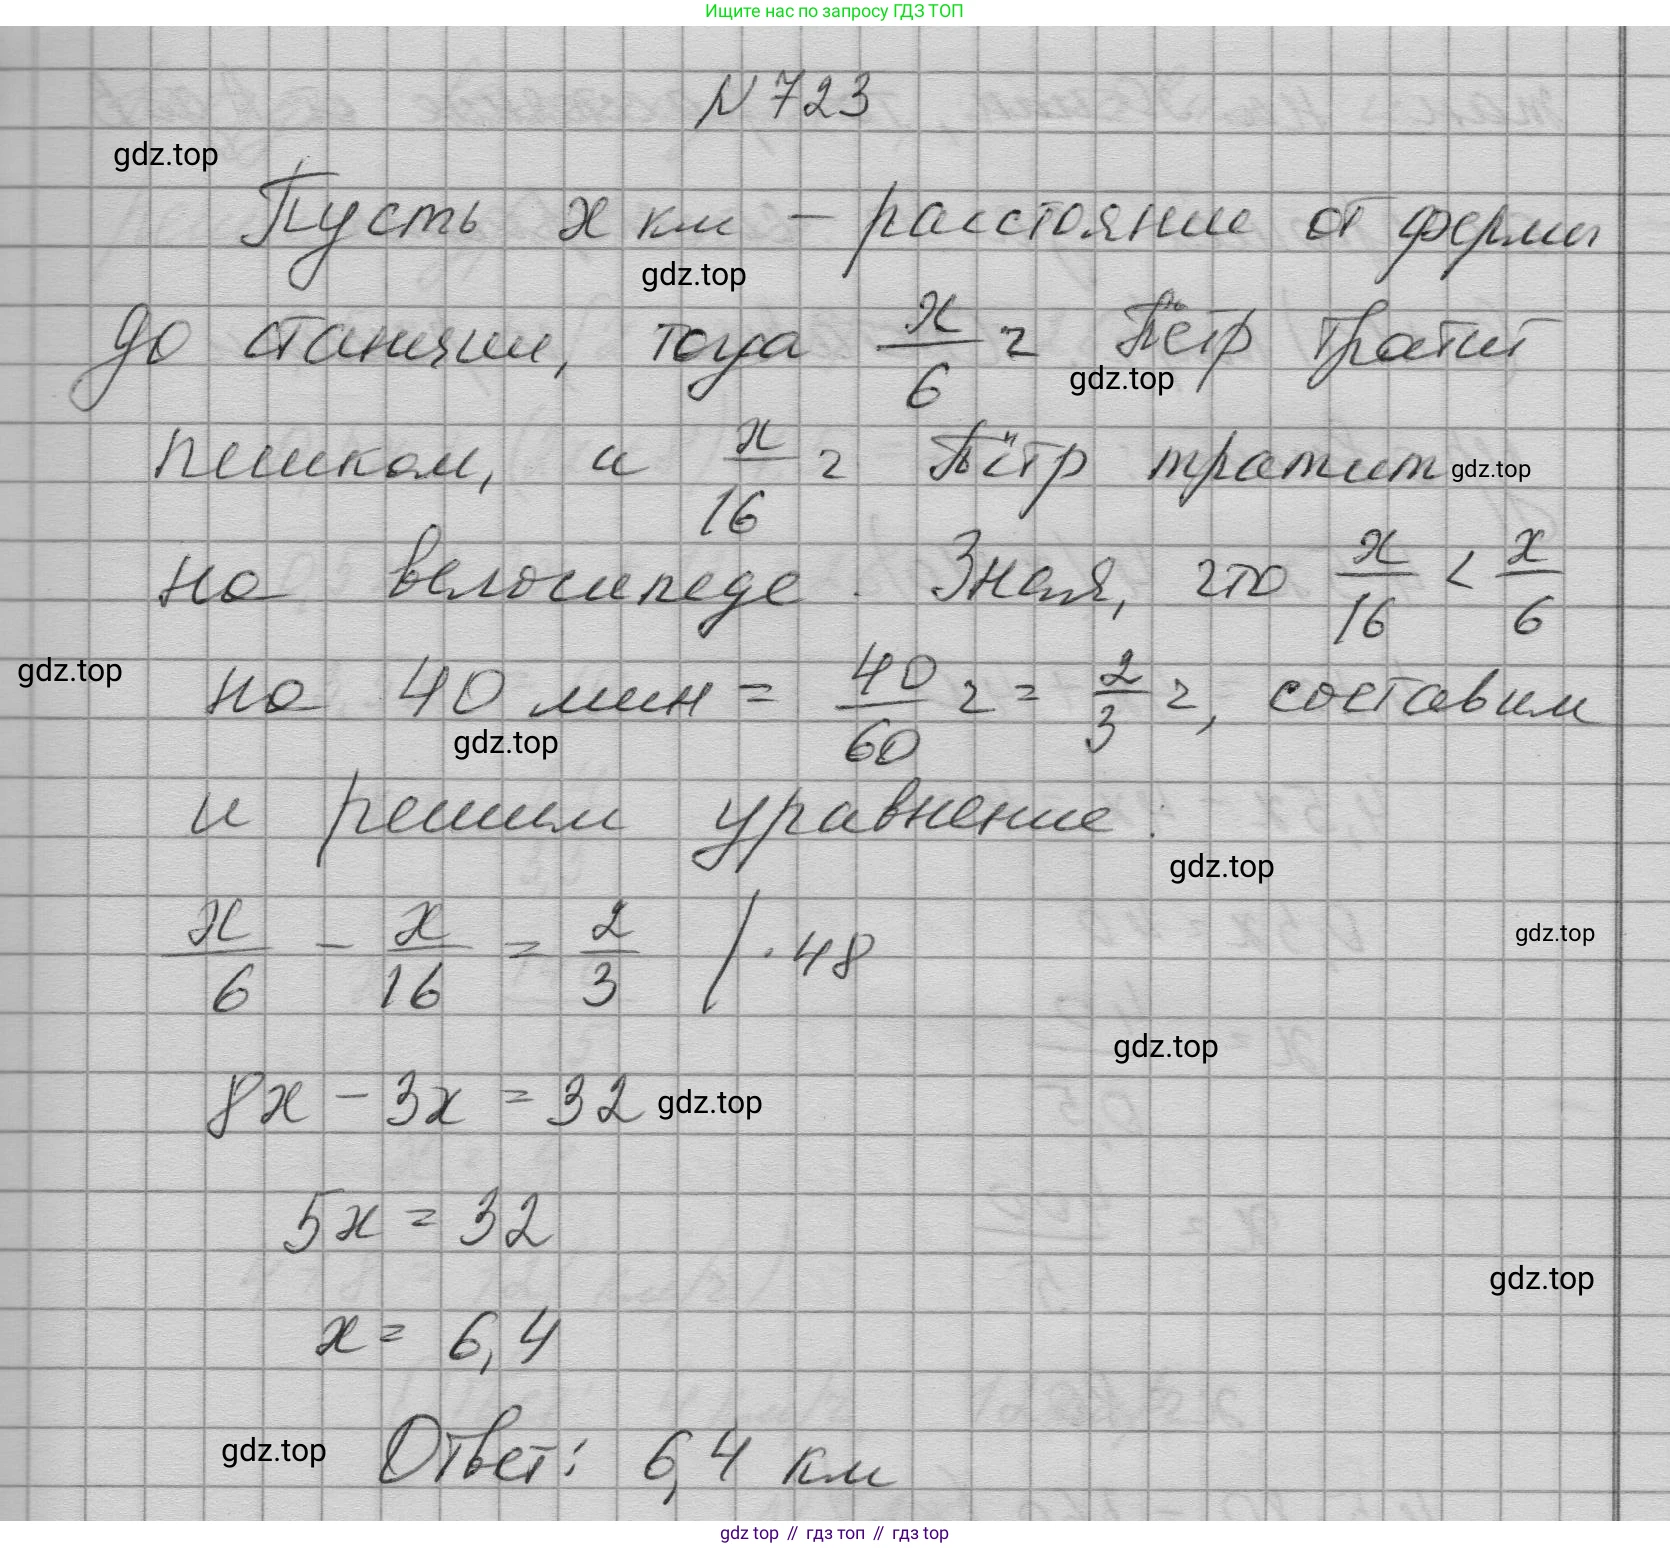 Ищите нас по запросу ГДЗ ТОП
N 723
gdz.top
Пусть x км – расстояние от фермы
gdz.top
до станции, тогда x/6 ч Пётр тратит
gdz.top
пешком, и x/16 ч Пётр тратит gdz.top
на велосипеде. Зная, что x/16 < x/6
gdz.top
на 40 мин = 40/60 ч = 2/3 ч, составим
gdz.top
и решим уравнение:
gdz.top
x/6 - x/16 = 2/3 / · 48
gdz.top
gdz.top
8x - 3x = 32 gdz.top
5x = 32
gdz.top
x = 6,4
gdz.top Ответ: 6,4 км
gdz top // гдз топ // гдз top